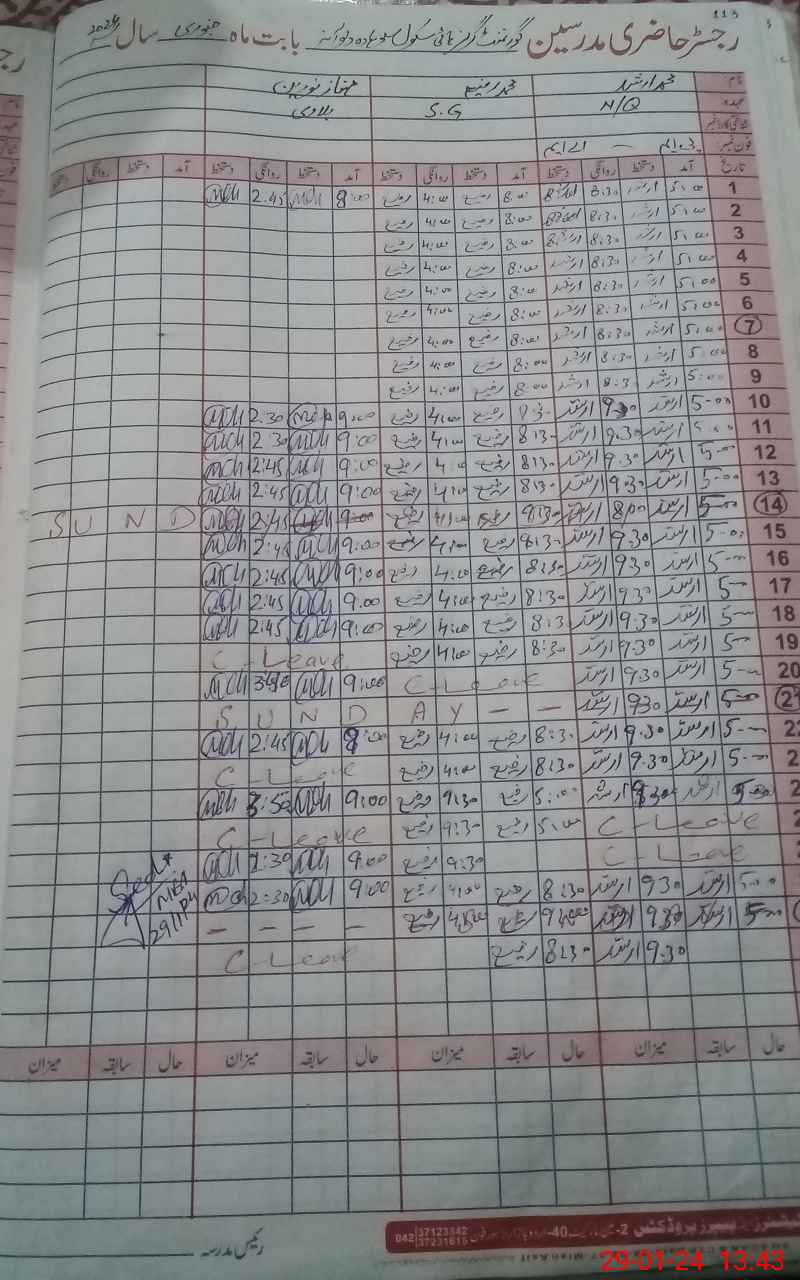 113
رجسٹر حاضری مدرسین گورنمنٹ گرلز ہائی سکول بابت ماہ جنوری سال 2024
نام محمد ارشد محمد رفیع مہناز نورین
عہدہ N/Q S.G
شناختی کارڈ نمبر
فون نمبر پی ایم - اے ایم
تاریخ آمد دستخط روانگی دستخط آمد دستخط روانگی دستخط آمد دستخط روانگی دستخط آمد دستخط روانگی دستخط
1 5:00 ارشد 8:30 ارشد 8:00 رفیع 4:00 رفیع 8:00 MCh 2:45 MCh
2 5:00 ارشد 8:30 ارشد 8:00 رفیع 4:00 رفیع
3 5:00 ارشد 8:30 ارشد 8:00 رفیع 4:00 رفیع
4 5:00 ارشد 8:30 ارشد 8:00 رفیع 4:00 رفیع
5 5:00 ارشد 8:30 ارشد 8:00 رفیع 4:00 رفیع
6 5:00 ارشد 8:30 ارشد 8:00 رفیع 4:00 رفیع
7 5:00 ارشد 8:30 ارشد 8:00 رفیع 4:00 رفیع
8 5:00 ارشد 8:30 ارشد 8:00 رفیع 4:00 رفیع
9 5:00 ارشد 8:30 ارشد 8:00 رفیع 4:00 رفیع
10 5-00 ارشد 9:30 ارشد 8:30 رفیع 4:00 رفیع 9:00 MCh 2:30 MCh
11 5:00 ارشد 9.30 ارشد 8:30 رفیع 4:00 رفیع 9:00 MCh 2:30 MCh
12 5-00 ارشد 9.30 ارشد 8:30 رفیع 4:00 رفیع 9:00 MCh 2:45 MCh
13 5-00 ارشد 9.30 ارشد 8:30 رفیع 4:00 رفیع 9:00 MCh 2:45 MCh
14 5-00 ارشد 8:00 ارشد 9:30 رفیع 4:00 رفیع 9:00 MCh 2:45 MCh S U N D
15 5-00 ارشد 9.30 ارشد 8:30 رفیع 4:00 رفیع 9:00 MCh 2:45 MCh
16 5-00 ارشد 9.30 ارشد 8:30 رفیع 4:00 رفیع 9:00 MCh 2:45 MCh
17 5-00 ارشد 9.30 ارشد 8:30 رفیع 4:00 رفیع 9.00 MCh 2:45 MCh
18 5-00 ارشد 9.30 ارشد 8:3 رفیع 4:00 رفیع 9:00 MCh 2:45 MCh
19 5-00 ارشد 9.30 ارشد 8:30 رفیع 4:00 رفیع C-Leave
20 5-00 ارشد 9.30 ارشد C-Leave 9:00 MCh MCh
2 5-00 ارشد 930 ارشد S U N D A Y - -
22 5-00 ارشد 9.30 ارشد 8:30 رفیع 4:00 رفیع 8:00 MCh 2:45 MCh
2 5-00 ارشد 9.30 ارشد 8:30 رفیع 4:00 رفیع C-Leave
2 5-00 ارشد 9:30 ارشد 5:00 رفیع 9:30 رفیع 9:00 MCh 3:50 MCh
2 C-Leave 5:00 رفیع 9:30 رفیع C-Leave
C-Leave 9:30 رفیع 9:00 MCh 2:30 MCh
5-00 ارشد 930 ارشد 8:30 رفیع 4:00 رفیع 9:00 MCh 2:30 MCh
5-00 ارشد 930 ارشد رفیع رفیع - - - -
9.30 ارشد 8:30 رفیع C-Leave
MEA
29/1
حال سابقہ میزان حال سابقہ میزان حال سابقہ میزان حال سابقہ میزان
رئیس مدرسہ
پیپرز پروڈکشن 2- 40-
042 37123342
37231615
29-01-24 13:43